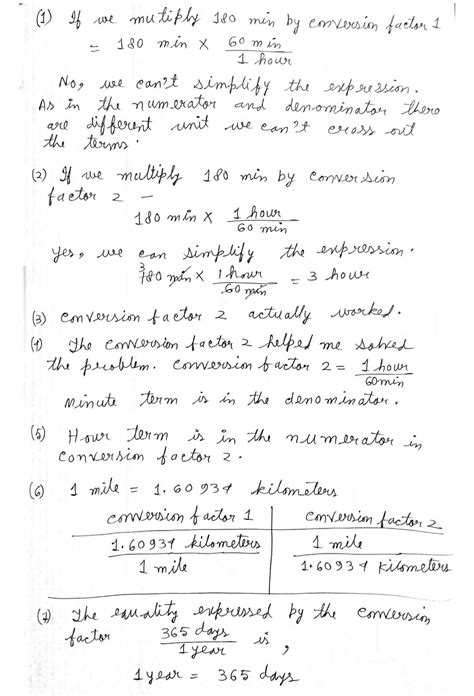 (1) If we mutiply 180 min by conversion factor 1
= 180 min × 60 min / 1 hour
No, we can't simplify the expression.
As in the numerator and denominator there
are different unit we can't cross out
the terms.
(2) If we multiply 180 min by conversion
factor 2 —
180 min × 1 hour / 60 min
Yes, we can simplify the expression.
3 180 min × 1 hour / 60 min = 3 hour
(3) conversion factor 2 actually worked.
(4) The conversion factor 2 helped me solved
the problem. conversion factor 2 = 1 hour / 60 min
Minute term is in the denominator.
(5) Hour term is in the numerator in
conversion factor 2.
(6) 1 mile = 1.60934 kilometers
conversion factor 1 conversion factor 2
1.60934 kilometers / 1 mile 1 mile / 1.60934 kilometers
(7) The equality expressed by the conversion
factor 365 days / 1 year is,
1 year = 365 days